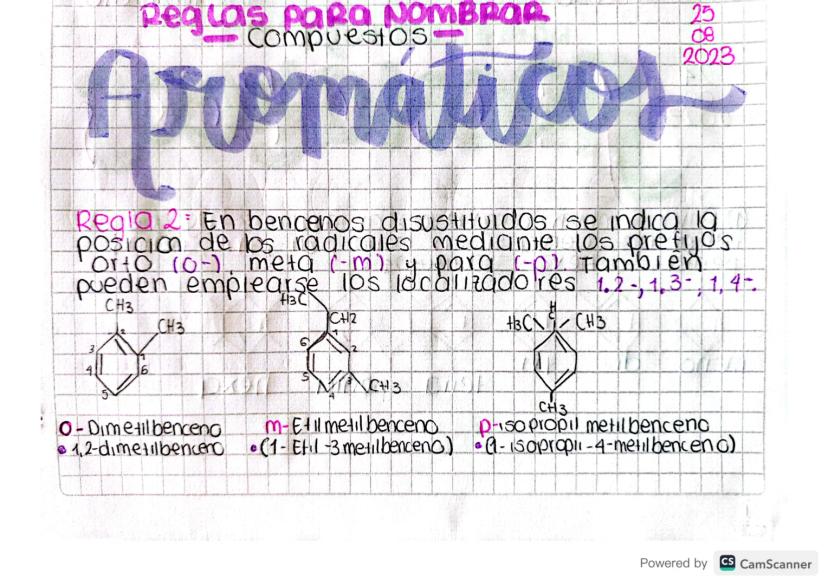 Reglas para nombrar
compuestos
Aromáticos
25
08
2023
Regla 2: En bencenos disustituidos se indica la
posición de los radicales mediante los prefijos
orto (o-) meta (-m) y para (-p). También
pueden emplearse los localizadores 1,2-, 1,3-, 1,4-.
CH3
CH3
2
3
1
4
6
5
H3C
CH2
1
6
2
5
3
4
CH3
H
H3C C CH3
CH3
o-Dimetilbenceno
1,2-dimetilbenceno
m-Etilmetilbenceno
(1-Etil-3metilbenceno)
p-isopropil metilbenceno
(1-isopropil-4-metilbenceno)
Powered by CS CamScanner